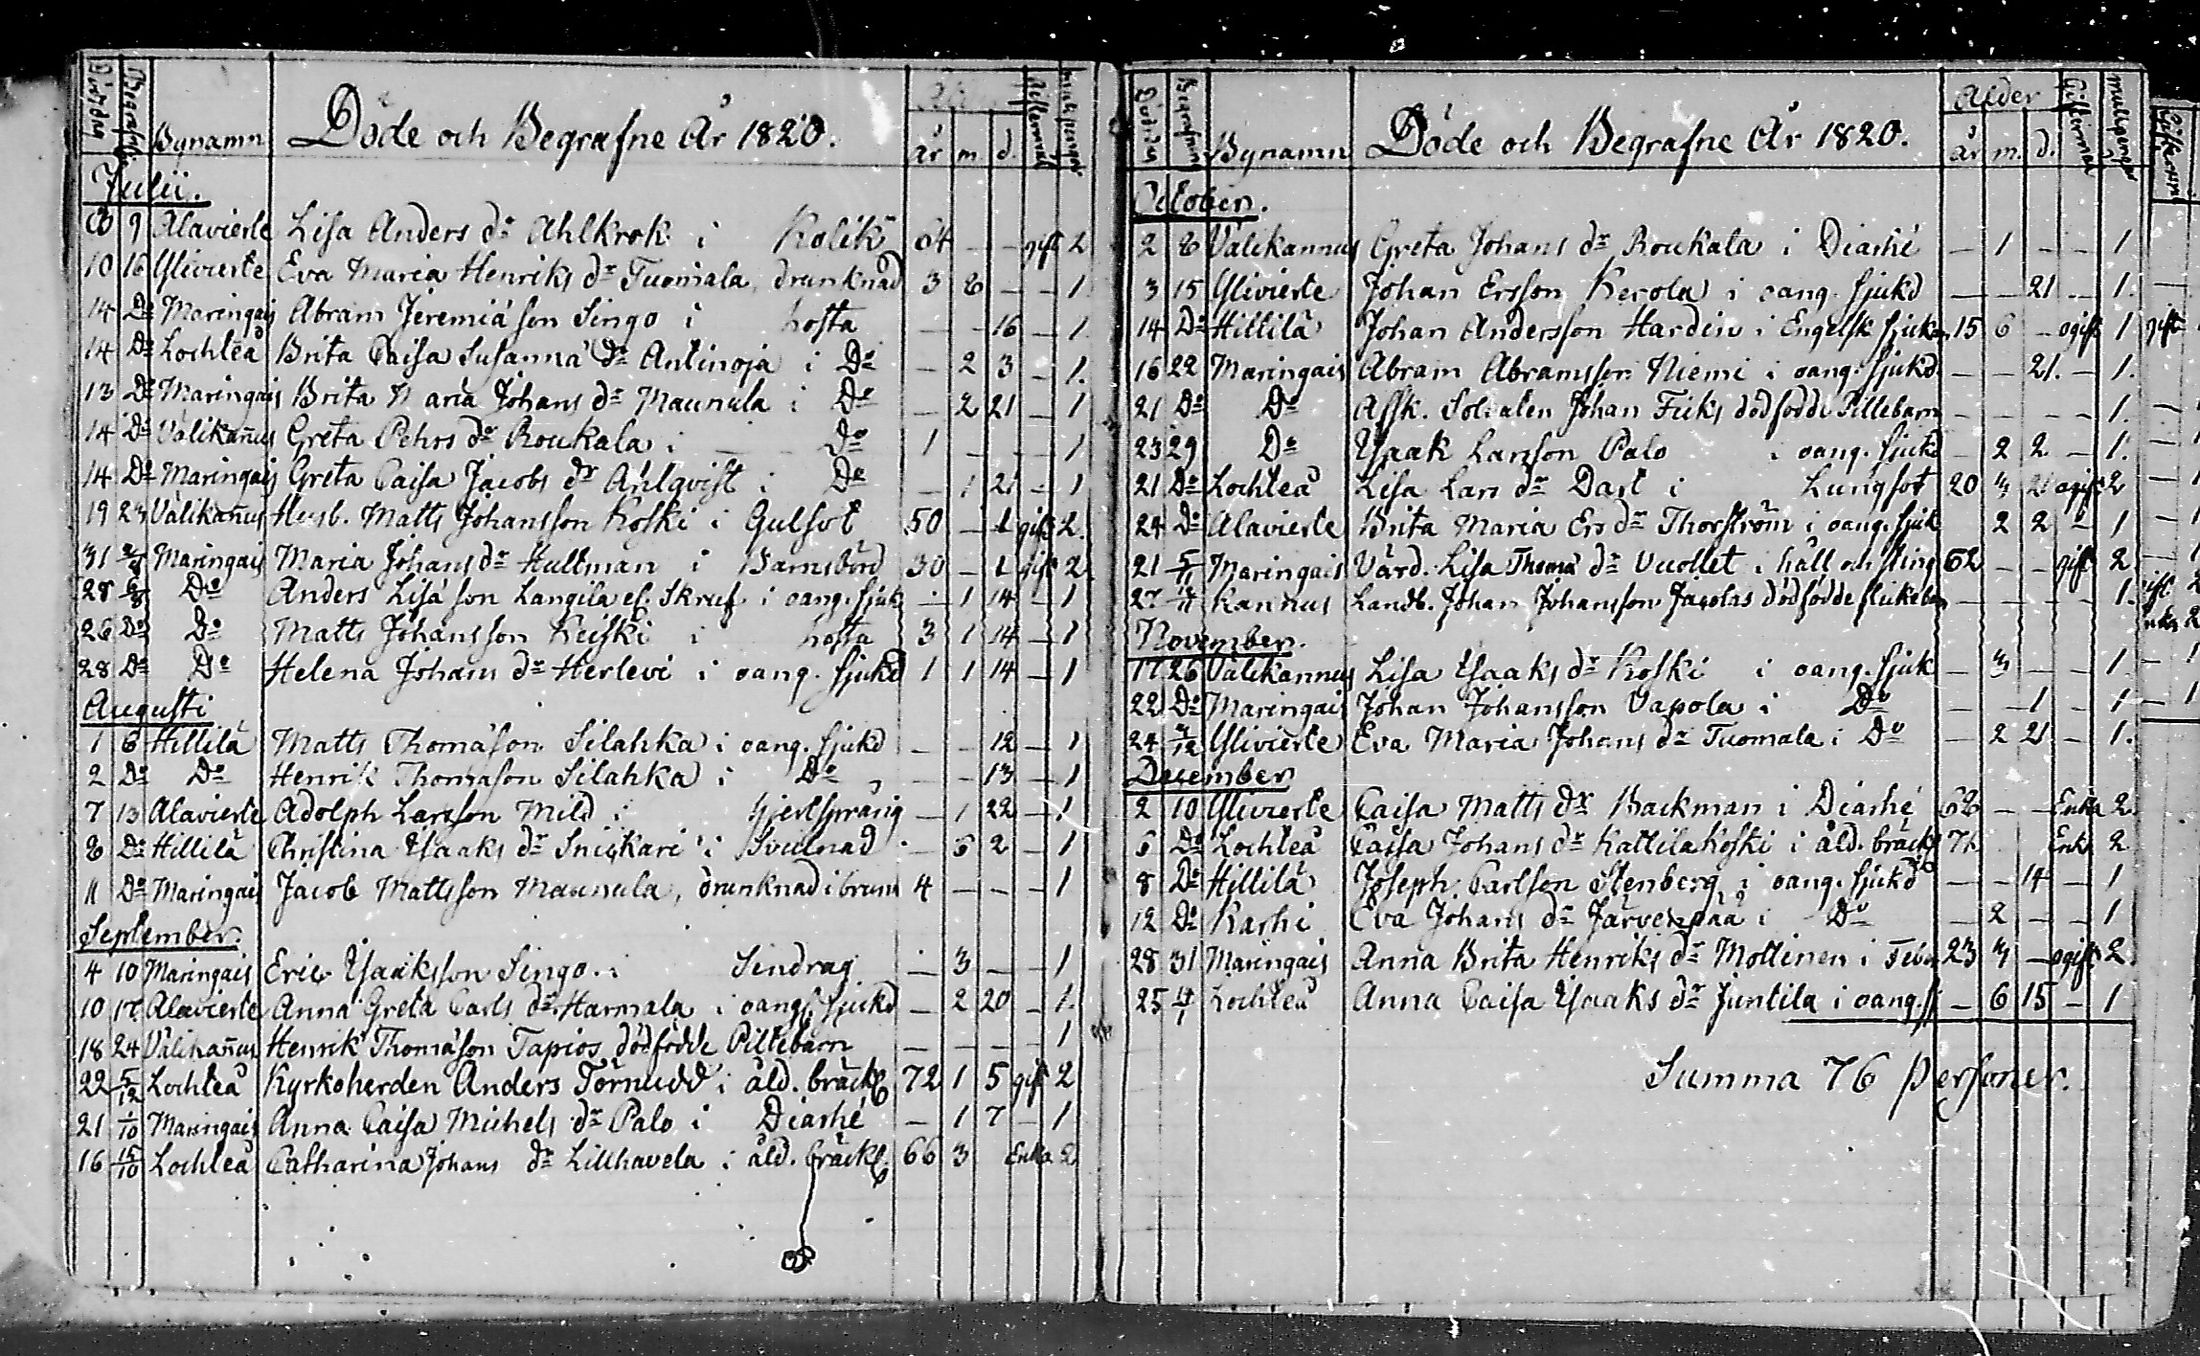 Bynamn Döde och Begrafne År 1820.
år m d.
Julii.
8 9 Alavierte Lisa Anders dr Ahlkrok i Kolik 64 - - gift 2
10 16 Ylivierte Eva Maria Henriks dr Tuomala, drunknad 3 8 - - 1.
14 Do Maringais Abram Jeremiæ son Singo i hosta - - 16 - 1.
14 Do Lochteå Brita Caisa Susannæ dr Antinoja i Do - 2 3 - 1.
13 Do Maringais Brita Maria Johans dr Maunula i Do - 2 21 - 1
14 Do Välikañus Greta Pehrs dr Roukala i Do 1 - - - 1
14 Do Maringais Greta Caisa Jacobs dr Ahlqvist i Do - 1 21 - 1
19 23 Välikañus Husb. Matts Johansson Koski i Gulsot 50 - 1 gift 2.
31 Maringais Maria Johans dr Hultman i Barnsbörd 30 - 1 gift 2
28 6/8 Do Anders Lisæ son Langila el. Skruf i oang. sjuk - 1 14 - 1
26 Do Do Matts Johansson Keiski i hosta 3 1 14 - 1
28 Do Do Helena Johans dr Herlevi i oang. sjukd 1 1 14 - 1
Augusti
1 6 Hillilä Matts Thomæson Silahka i oang. sjukd - - 12 - 1
2 Do Do Henrik Thomæson Silahka i Do - - 13 - 1
7 13 Alavierte Adolph Larsson Mild i Hjertsprång - 1 22 - 1
8 Do Hillilä Christina Ysaaks dr Snickari i Svullnad - 6 2 - 1
11 Do Maringais Jacob Mattsson Maunula, drunknad i brunn 4 - - - 1
September.
4 10 Maringais Eric Ysaaksson Singo i Sendrag - 3 - - 1
10 17 Alavierte Anna Greta Carls dr Harmala i oang. sjukd - 2 20 - 1.
18 24 Välikañus Henrik Thomæson Tapios dödfödde Piltebarn - - - - 1
22 5/12 Lochteå Kyrkoherden Anders Törnudd i åld. bräckl 72 1 5 gift 2
21 1/10 Maringais Anna Caisa Michels dr Palo i Diarhé - 1 7 - 1
16 15/10 Lochteå Catharina Johans dr Lillhavela i åld. bräckl. 66 3 Enka 2
Bynamn Döde och Begrafne År 1820.
Ålder
år m. d.
October.
2 8 Välikannus Greta Johans dr Roukala i Diarhé - 1 - - 1
3 15 Ylivierte Johan Ersson Kerola i oang. sjukd - - 21 - 1.
14 Do Hillilä Johan Andersson Hardin i Engelsk sjukan 15 6 - ogift 1
16 22 Maringais Abram Abramsson Niemi i oang. sjukd. - - 21. - 1.
21 Do Do Afsk. Soldaten Johan Ficks dödfödde Pillebarn - - - - 1.
23 29 Do Ysaak Larsson Palo i oang. sjukd - 2 2 - 1.
21 Do Lochteå Lisa Lars dr Dart i Lungsot 20 3 21 ogift 2
24 Do Alavierte Brita Maria Ers dr Thorström i oang. sjuk 2 2 - 1
21 5/11 Maringais Värd. Lisa Thomæ dr Vuollet i håll och sting 62 - - gift 2
27 Kannus Landb. Johan Johansson Jacolas dödfödde flickebarn - - - - 1.
November.
17 26 Välikannus Lisa Ysaaks dr Koski i oang. sjuk - 3 - - 1.
22 Do Maringais Johan Johansson Vapola i Do - - 1 - 1
24 Ylivierte Eva Maria Johans dr Tuomala i Do - 2 21 - 1.
December
2 10 Ylivierte Caisa Matts dr Backman i Diarhé 68 - - Enka 2.
6 Do Lochteå Caisa Johans dr Kattilakoski i åld. bräckl Enka 2
8 Do Hillilä Joseph Carlsson Stenberg i oang. sjukd - - 14 - 1
12 Do Karhi Eva Johans dr Järvenpää i Do - 2 - - 1
28 31 Maringais Anna Brita Henriks dr Mottinen i Feber 23 3 - ogift 2.
25 Lochteå Anna Caisa Ysaaks dr Juntila i oang. sj - 6 15 - 1
Summa 76 personer.